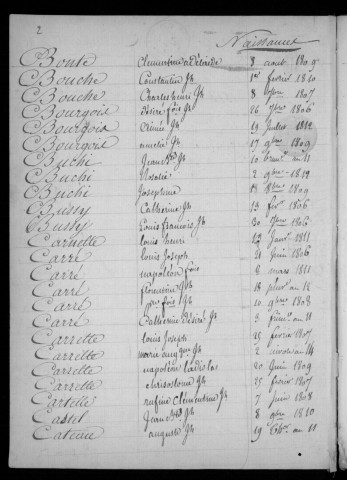 2
Naissance
Bonte Clementine adelaide 3 aout 1809
Bouche Constantin Jh 1er fevrier 1810
Bouche Charles henri Jh 8 1807
Bourgois désiré fois Jh 26 1806
Bourgois Jh 19 Juillet 1812
Bourgois Jh 17 9bre 1809
Buchi Jean Bte Jh 10 an 11
Buchi Rosalie 2 9bre 1812
Buchi Josephine 13 1809
Bussy Catherine Jh 13 fer 1806
Bussy Louis francois Jh 30 1806
Carlette louis henri 13 Janv 1811
Carré louis Joseph 21 Juin 1806
Carré napoléon fois 2 mars 1811
Carré florentine Jh 18 an 12
Carré fois Jh 10 9bre 1808
Carré Catherine désirée Jh 3 an 11
Carrette louis Joseph 25 fevrier 1807
Carrette marie Jh 2 an 14
Carrette napoléon ladislas 20 Juin 1809
Carrette chrisostome Jh 25 fevrier 1807
Cartelle rufine Clémentine Jh 7 Juin 1808
Castel Jean Bte Jh 8 9bre 1810
Cateau auguste Jh 19 an 11